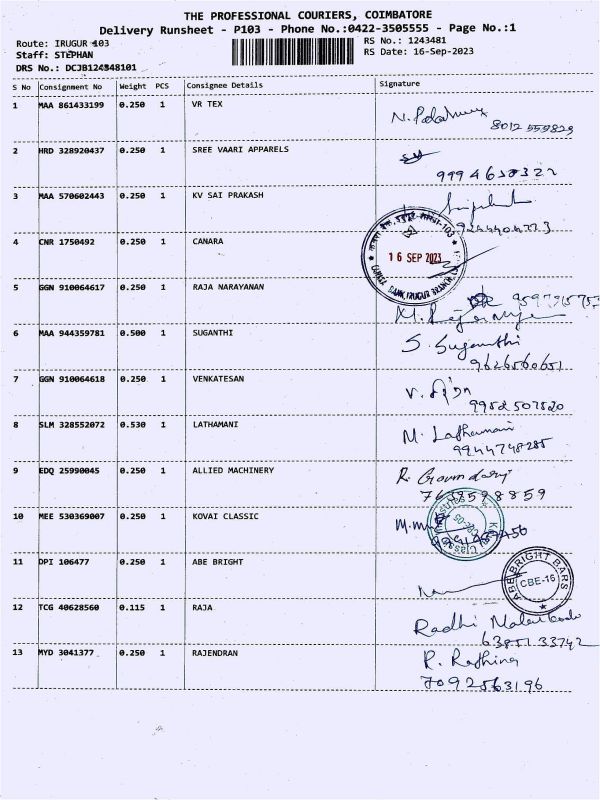 THE PROFESSIONAL COURIERS, COIMBATORE
Delivery Runsheet - P103 - Phone No.:0422-3505555 - Page No.:1
Route: IRUGUR 103
RS No.: 1243481
Staff: STEPHAN
RS Date: 16-Sep-2023
DRS No.: DCJB124348101
S No Consignment No Weight PCS Consignee Details Signature
1 MAA 861433199 0.250 1 VR TEX
8012 559829
2 HRD 328920437 0.250 1 SREE VAARI APPARELS
3 MAA 570602443 0.250 1 KV SAI PRAKASH
4 CNR 1750492 0.250 1 CANARA
16 SEP 2023
5 GGN 910064617 0.250 1 RAJA NARAYANAN
6 MAA 944359781 0.500 1 SUGANTHI S. Suganthi
9626560651
7 GGN 910064618 0.250 1 VENKATESAN
9952507520
8 SLM 328552072 0.530 1 LATHAMANI M. Lathamani
9944748285
9 EDQ 25990045 0.250 1 ALLIED MACHINERY
7638598859
10 MEE 530369007 0.250 1 KOVAI CLASSIC
11 DPI 106477 0.250 1 ABE BRIGHT
ABE BRIGHT BARS
CBE-16
12 TCG 40628560 0.115 1 RAJA Radhi
6385133742
13 MYD 3041377 0.250 1 RAJENDRAN R. Rathina
7092563196